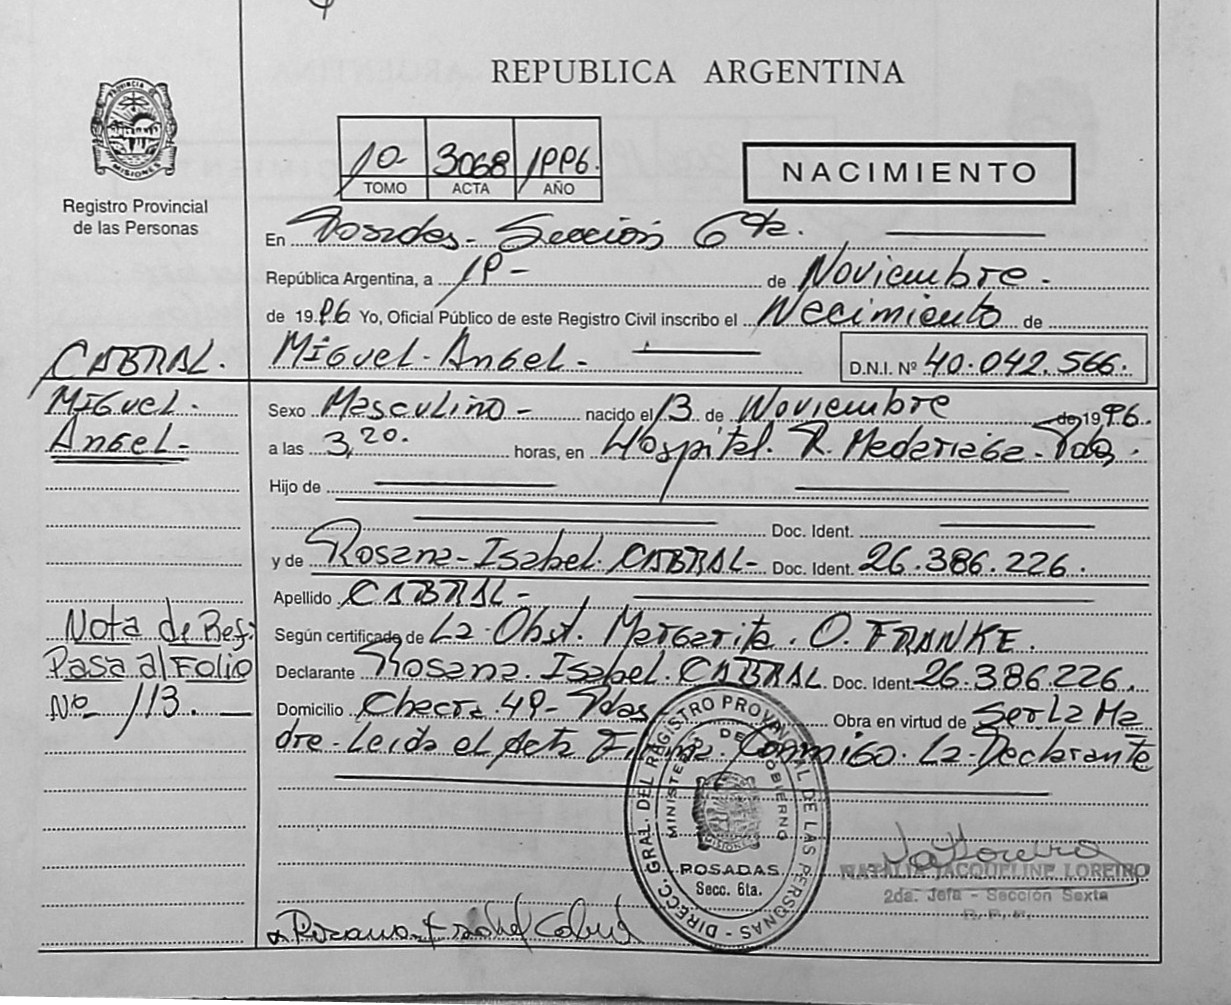 REPUBLICA ARGENTINA
PROVINCIA DE MISIONES
Registro Provincial
de las Personas
10- 3068 1996.
TOMO ACTA AÑO
NACIMIENTO
En Posadas - Sección 6ta.
República Argentina, a 19- de Noviembre.
de 1996 Yo, Oficial Público de este Registro Civil inscribo el Nacimiento de
CABRAL. Miguel - Angel - D.N.I. Nº 40.042.566.
Miguel. Sexo Masculino - nacido el 13 de Noviembre de 1996.
Angel - a las 3,20. horas, en Hospital. R. Madariaga - Pdas.
Hijo de
Doc. Ident.
y de Rosana - Isabel. CABRAL - Doc. Ident. 26.386.226.
Apellido CABRAL -
Nota de Ref. Según certificado de La Obst. Margarita. O. FRANKE.
Pasa al Folio Declarante Rosana. Isabel. CABRAL Doc. Ident. 26.386226.
Nº 113. Domicilio Chacra 49 - Pdas Obra en virtud de Ser La Ma
dre - Leída el Acta Firma Conmigo. La Declarante
DIRECC. GRAL. DEL REGISTRO PROVINCIAL DE LAS PERSONAS
MINISTERIO DE GOBIERNO
MISIONES
POSADAS
Secc. 6ta.
NATALIA JACQUELINE LOREIRO
2da. Jefa - Sección Sexta
R. P. P.
Rosana Isabel Cabral